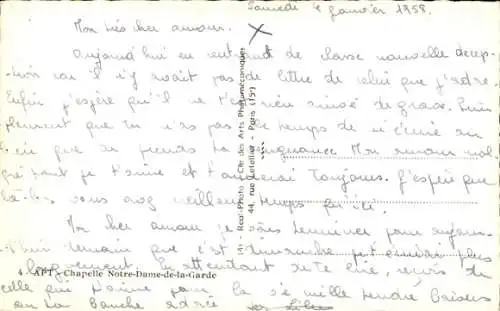 Samedi 4 Janvier 1958.
Mon très cher amour.
Aujourd'hui en rentrant de classe nouvelle décep-
-tion car il n'y avait pas de lettre de celui que j'adore.
Enfin j'espère qu'il ne t'est rien arrivé de grave.
que tu n'as pas le temps de m'écrire ou
bien que tu prends la Mon amour mal
gré tout je t'aime et t'aimerai toujours. J'espère que
là-bas vous avez meilleur temps qu'ici.
Mon cher amour je vais terminer pour aujour-
d'hui demain que c'est dimanche je t'écrirai plus
longuement. En attendant de te lire, reçois de
celle qui t'aime pour la vie mille tendres baisers
sur ta bouche adorée
4 - APT - Chapelle Notre-Dame-de-la-Garde
Real-Photo - Cie des Arts Photomécaniques
44, rue Letellier - Paris (15e)